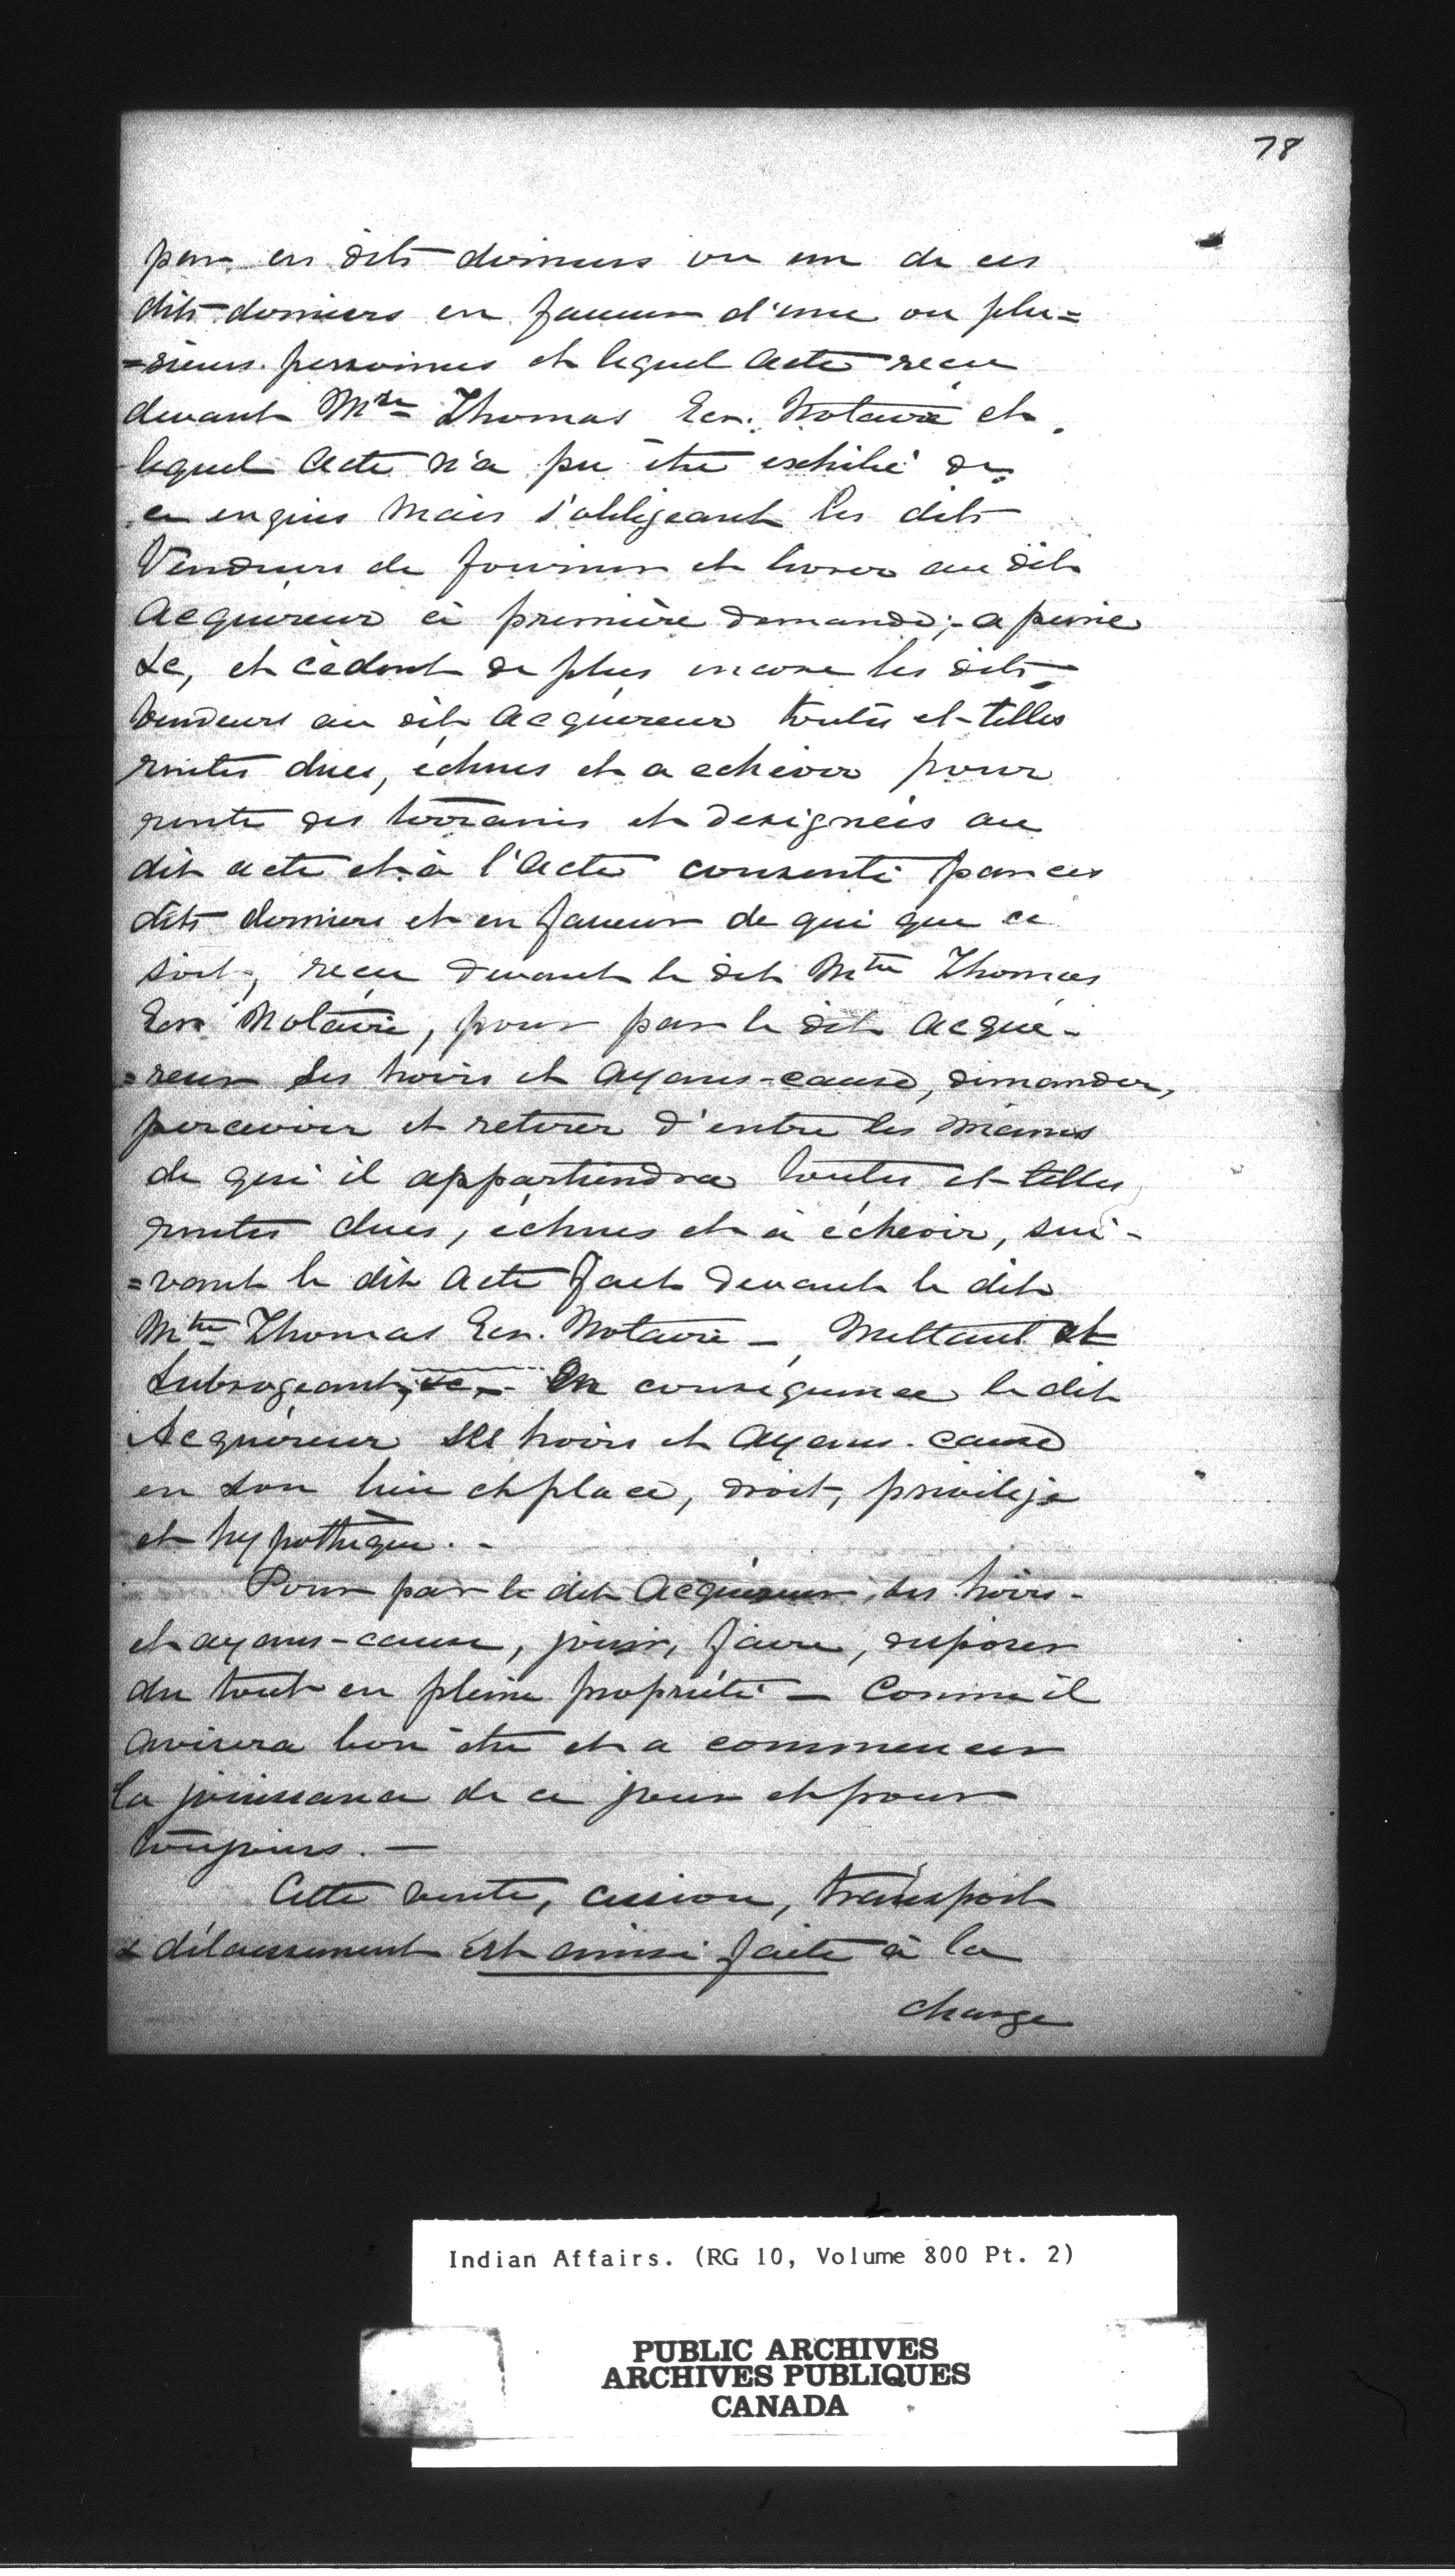 78
par ces dits derniers ou un de ces
dits derniers en faveur d'une ou plu=
=sieurs personnes et lequel acte recu
devant Mtre Thomas Ecr. Notaire et
lequel Acte n'a pu être exhibé de
ce enquis Mais s'obligeant les dits
Vendeurs de fournir et livrer au dit
Acquéreur à première demande; a peine
&c, et cèdent de plus encore les dits
Vendeurs au dit Acquéreur toutes et telles
rentes dues, échues et a echeoir pour
rente des terrains et designées au
dit acte et à l'Acte consenti par ces
dits derniers et en faveur de qui que ce
soit, recu devant le dit Mtre Thomas
Ecr Notaire, pour par le dit Acqué-
=reur ses hoirs et Ayans-cause, demander,
percevoir et retirer d'entre les mains
de qui il appartiendra toutes et telles
rentes dues, échues et à écheoir, sui-
=vant le dit Acte fait devant le dit
Mtre Thomas Ecr. Notaire - Mettant et
Subrogeant, &c, - En conséquence le dit
Acquéreur ses hoirs et Ayans-cause
en son lieu et place, droit, privilège
et hypothèque. -
Pour par le dit Acquéreur, ses hoirs -
et ayans-cause, jouir, faire, disposer
du tout en pleine propriété - Comme il
avisera bon être et a commencer
la jouissance de ce jour et pour
toujours. -
Cette vente, cession, transport
& délaissement est ainsi faite à la
charge
Indian Affairs. (RG 10, Volume 800 Pt. 2)
PUBLIC ARCHIVES
ARCHIVES PUBLIQUES
CANADA